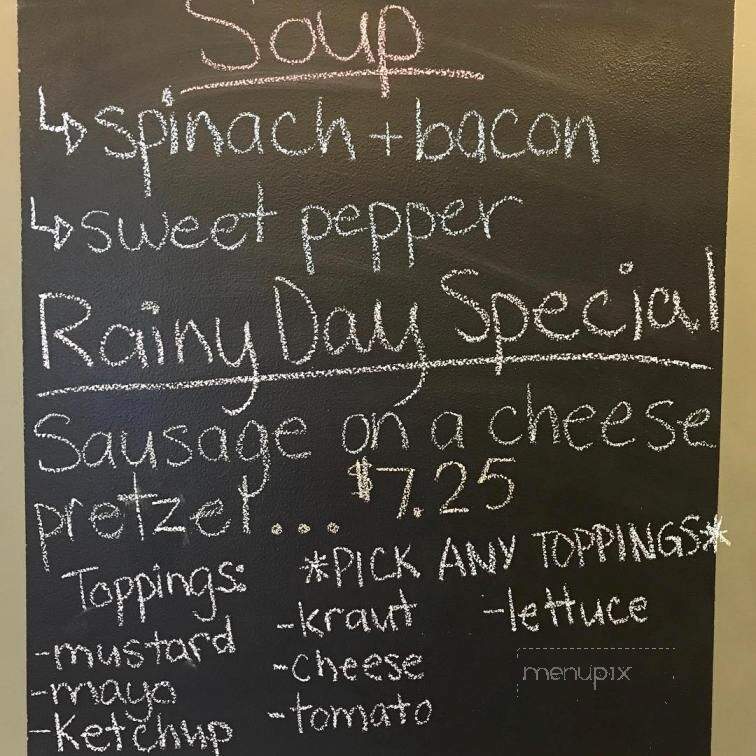 Soup
↳spinach + bacon
↳sweet pepper
Rainy Day Special
Sausage on a cheese
pretzel... $7.25
*PICK ANY TOPPINGS*
Toppings:
-mustard
-mayo
-Ketchup
-kraut
-cheese
-tomato
-lettuce
menupix